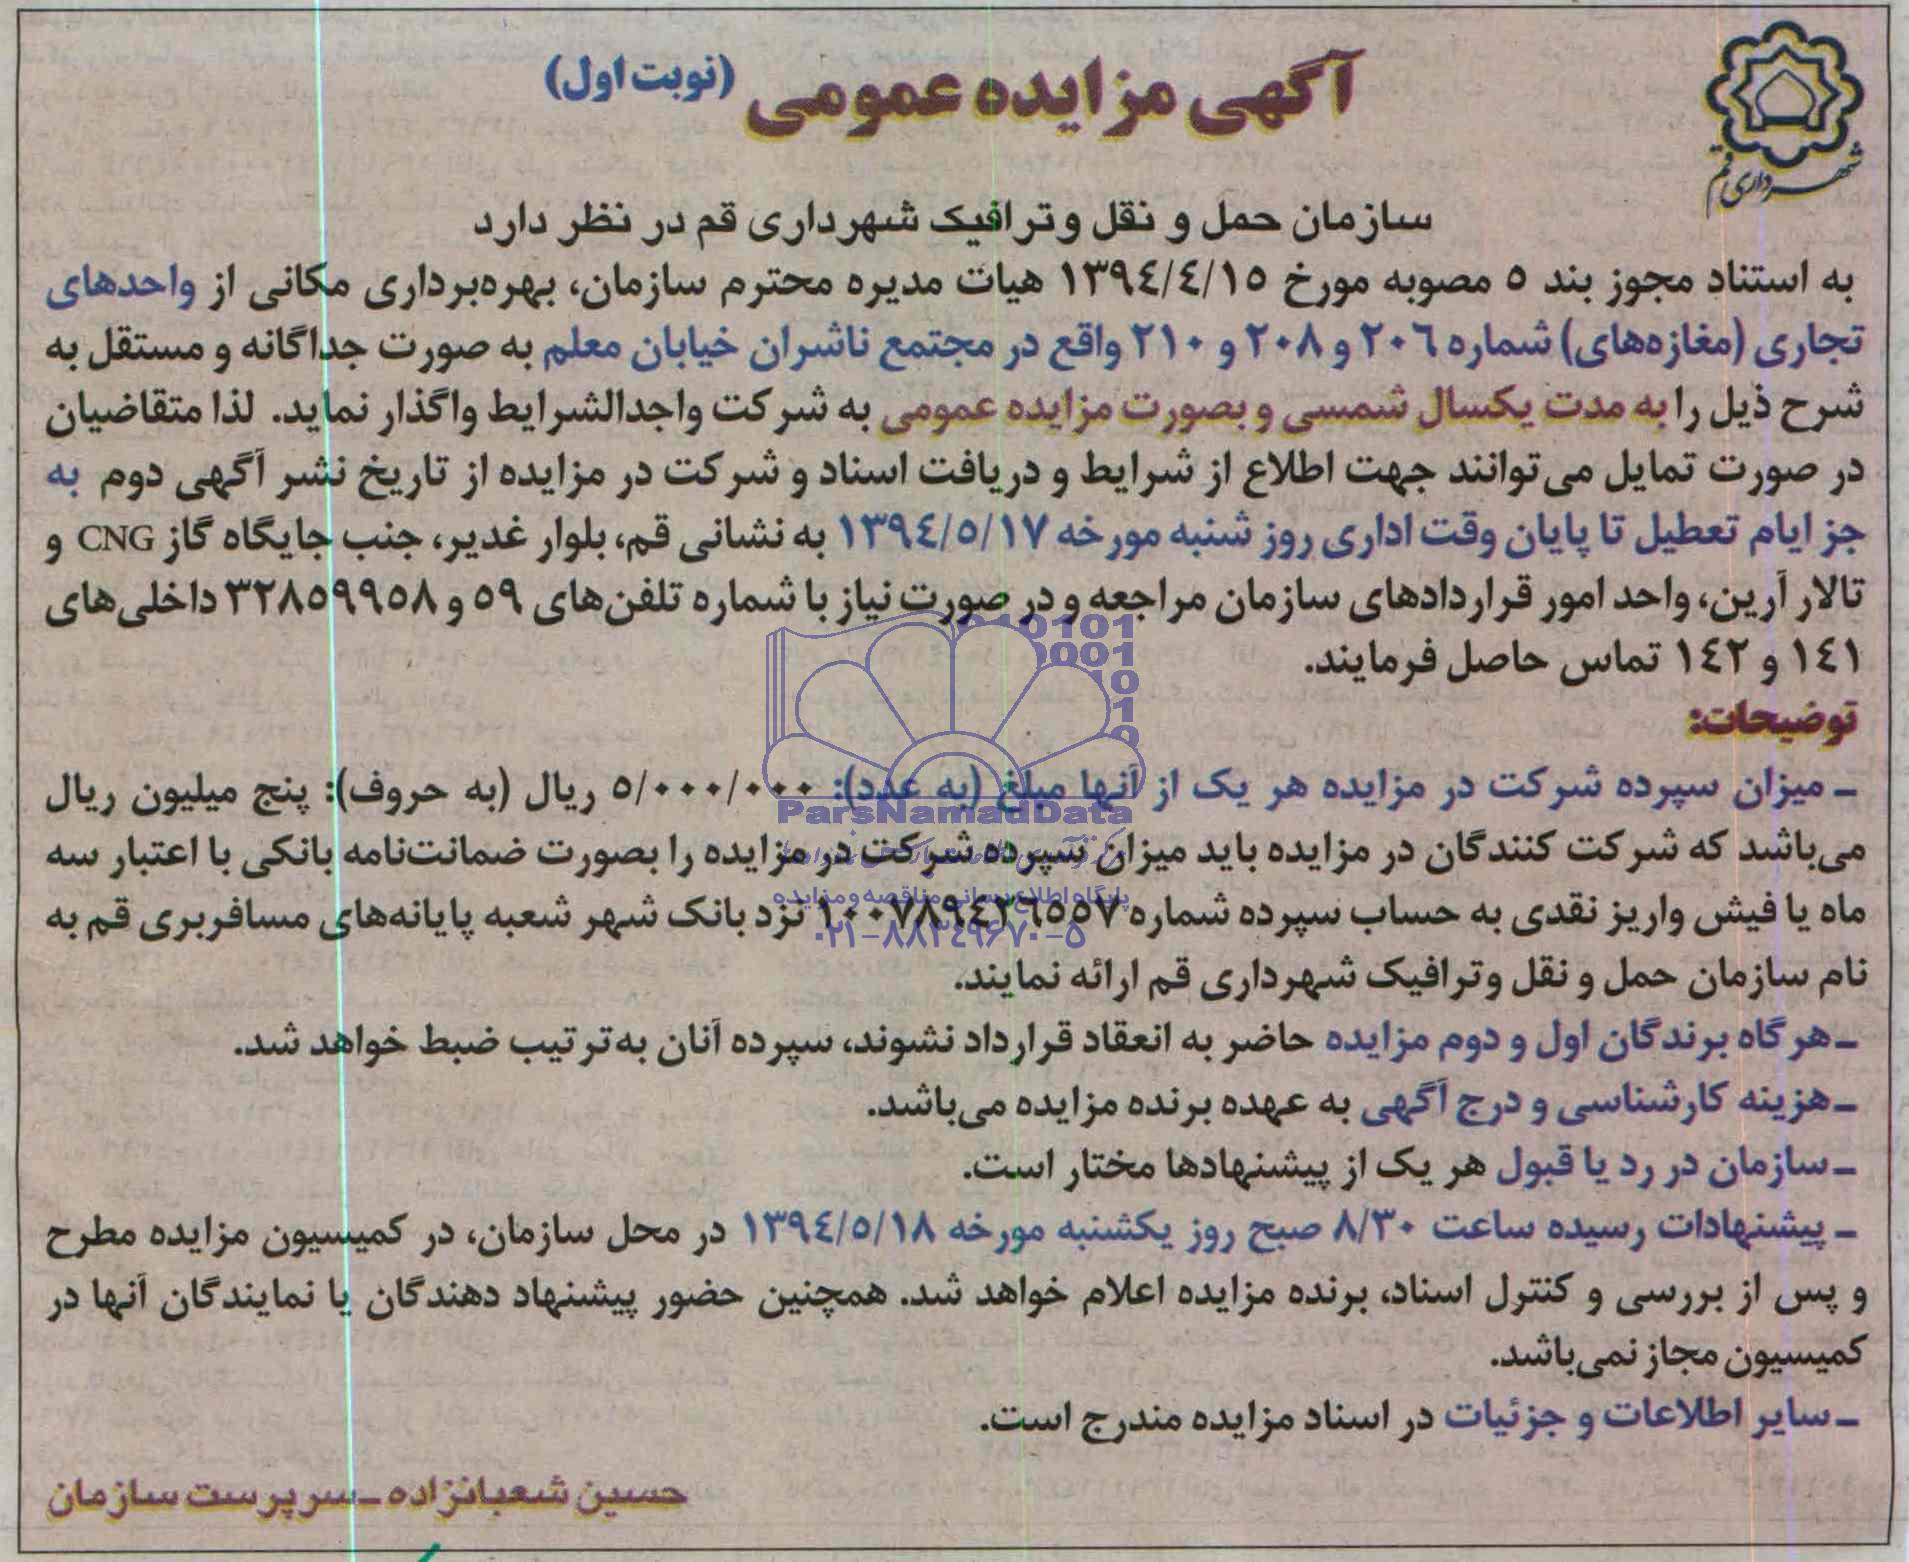 آگهی مزایده عمومی (نوبت اول)
شهرداری قم
سازمان حمل و نقل و ترافیک شهرداری قم در نظر دارد
به استناد مجوز بند ٥ مصوبه مورخ ١٣٩٤/٤/١٥ هیات مدیره محترم سازمان، بهره‌برداری مکانی از واحدهای
تجاری (مغازه‌های) شماره ٢٠٦ و ٢٠٨ و ٢١٠ واقع در مجتمع ناشران خیابان معلم به صورت جداگانه و مستقل به
شرح ذیل را به مدت یکسال شمسی و بصورت مزایده عمومی به شرکت واجدالشرایط واگذار نماید. لذا متقاضیان
در صورت تمایل می‌توانند جهت اطلاع از شرایط و دریافت اسناد و شرکت در مزایده از تاریخ نشر آگهی دوم به
جز ایام تعطیل تا پایان وقت اداری روز شنبه مورخه ١٣٩٤/٥/١٧ به نشانی قم، بلوار غدیر، جنب جایگاه گاز CNG و
تالار آرین، واحد امور قراردادهای سازمان مراجعه و در صورت نیاز با شماره تلفن‌های ٥٩ و ٣٢٨٥٩٩٥٨ داخلی‌های
١٤١ و ١٤٢ تماس حاصل فرمایند.
توضیحات:
ـ میزان سپرده شرکت در مزایده هر یک از آنها مبلغ (به عدد): ٥/٠٠٠/٠٠٠ ریال (به حروف): پنج میلیون ریال
می‌باشد که شرکت کنندگان در مزایده باید میزان سپرده شرکت در مزایده را بصورت ضمانت‌نامه بانکی با اعتبار سه
ماه یا فیش واریز نقدی به حساب سپرده شماره ١٠٠٧٨٩٤٢٦٥٥٧ نزد بانک شهر شعبه پایانه‌های مسافربری قم به
نام سازمان حمل و نقل و ترافیک شهرداری قم ارائه نمایند.
ـ هرگاه برندگان اول و دوم مزایده حاضر به انعقاد قرارداد نشوند، سپرده آنان به‌ترتیب ضبط خواهد شد.
ـ هزینه کارشناسی و درج آگهی به عهده برنده مزایده می‌باشد.
ـ سازمان در رد یا قبول هر یک از پیشنهادها مختار است.
ـ پیشنهادات رسیده ساعت ٨/٣٠ صبح روز یکشنبه مورخه ١٣٩٤/٥/١٨ در محل سازمان، در کمیسیون مزایده مطرح
و پس از بررسی و کنترل اسناد، برنده مزایده اعلام خواهد شد. همچنین حضور پیشنهاد دهندگان یا نمایندگان آنها در
کمیسیون مجاز نمی‌باشد.
ـ سایر اطلاعات و جزئیات در اسناد مزایده مندرج است.
حسین شعبانزاده ـ سرپرست سازمان
ParsNamadData
پایگاه اطلاع رسانی مناقصه و مزایده
۰۲۱-۸۸۳۴۹۶۷۰-۵